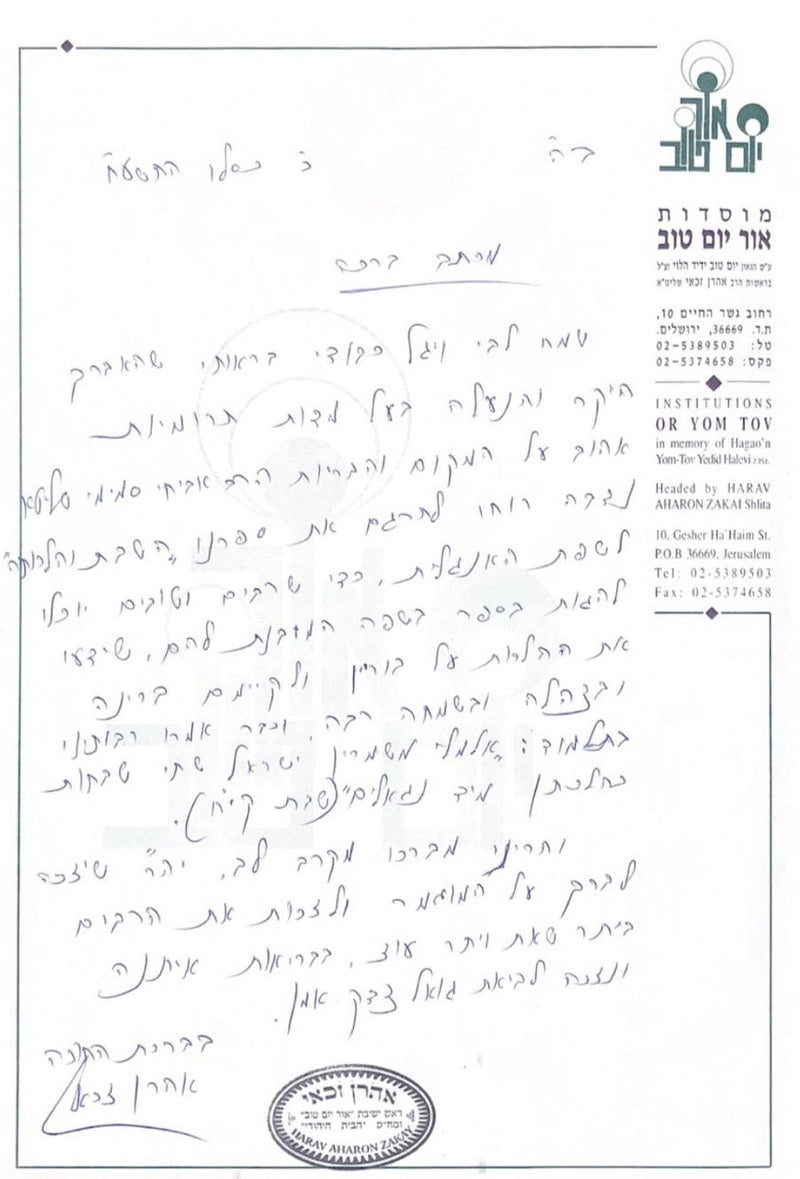 אור
יום טוב
מוסדות
אור יום טוב
ע"ש הגאון יום טוב ידיד הלוי זצ"ל
בראשות הרב אהרן זכאי שליט"א
רחוב גשר החיים 10,
ת.ד. 36669, ירושלים.
טל: 02-5389503
פקס: 02-5374658
INSTITUTIONS
OR YOM TOV
in memory of Hagao'n
Yom-Tov Yedid Halevi ZPSL
Headed by HARAV
AHARON ZAKAI Shlita
10, Gesher Ha'Haim St.
P.O.B 36669, Jerusalem
Tel: 02-5389503
Fax: 02-5374658
ב"ה
כ' כסלו התשע"ח
מכתב ברכה
שמח לבי ויגל כבודי בראותי שהאברך
היקר והנעלה בעל מדות תרומיות
אהוב על המקום והבריות הרב אביחי סמימי שליט"א
נדבה רוחו לתרגם את ספרנו "השבת והלכותיה"
לשפת האנגלית, כדי שרבים וטובים יוכלו
להגות בספר בשפה המובנת להם, שידעו
את ההלכות על בוריין ולקיימם ברינה
ובצהלה ובשמחה רבה, וכבר אמרו רבותינו
בתלמוד: "אלמלי משמרין ישראל שתי שבתות
כהלכתן מיד נגאלים" (שבת קי"ח).
והריני מברכו מקרב לב, יה"ר שיזכה
לברך על המוגמר ולזכות את הרבים
ביתר שאת ויתר עוז, בבריאות איתנה
ונזכה לביאת גואל צדק, אמן.
בברכת התורה
אהרן זכאי
אהרן זכאי
ראש ישיבת "אור יום טוב"
ומח"ס "הבית היהודי"
HARAV AHARON ZAKAY